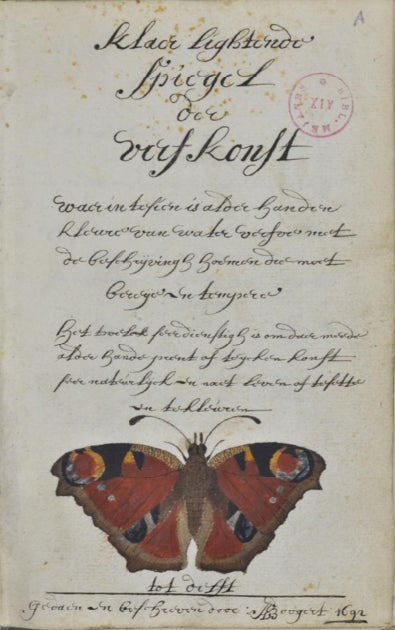 A
klaer lightende
Spiegel
der
verfkonst
BIBL. MEJANES
XIX
waer in te sien is alder handen
kleure van water verfve met
de beschrijvingh hoemen die moet
berege en tempere
Het welck seer dienstigh is om daer meede
alder hande prent of teycken konst
seer natuerlyck en naet leven of te sette
en te kleuren
tot delft
Gedaen en beschreven door: A Boogert 1692